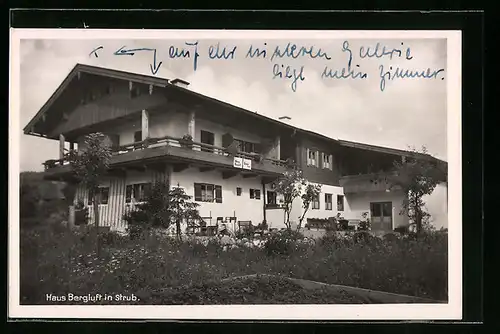 auf der hinteren Galerie
liegt mein Zimmer.
Haus Bergluft in Strub.